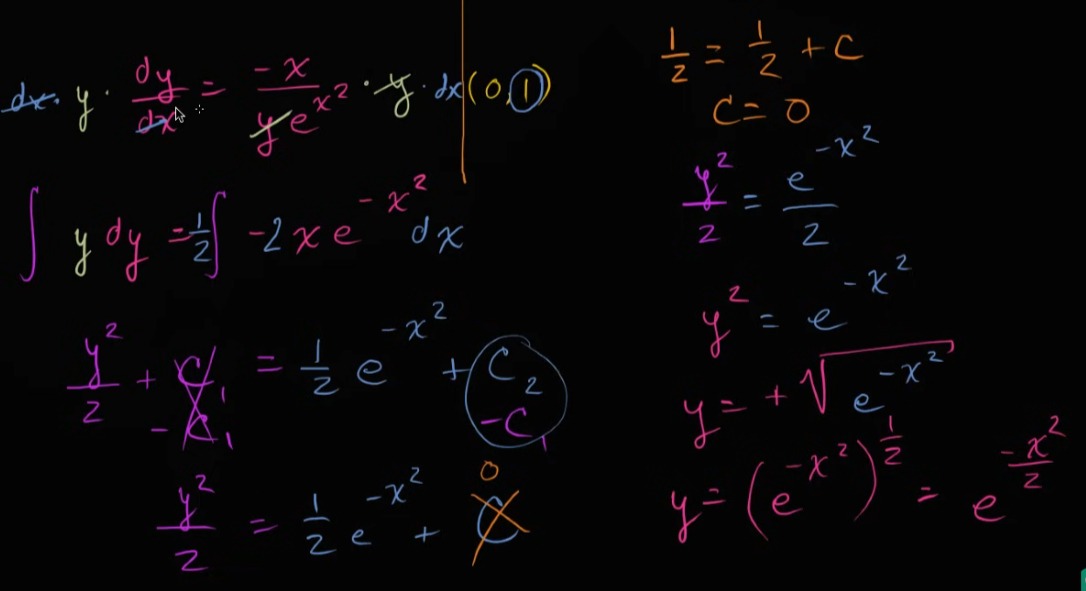 dx · y · dy/dx = -x/(y e^(x^2)) · y · dx (0, 1)
∫ y dy = 1/2 ∫ -2x e^(-x^2) dx
y^2/2 + C_1 - C_1 = 1/2 e^(-x^2) + C_2 - C_1
y^2/2 = 1/2 e^(-x^2) + C 0
1/2 = 1/2 + C
C = 0
y^2/2 = e^(-x^2)/2
y^2 = e^(-x^2)
y = +√(e^(-x^2))
y = (e^(-x^2))^(1/2) = e^(-x^2/2)